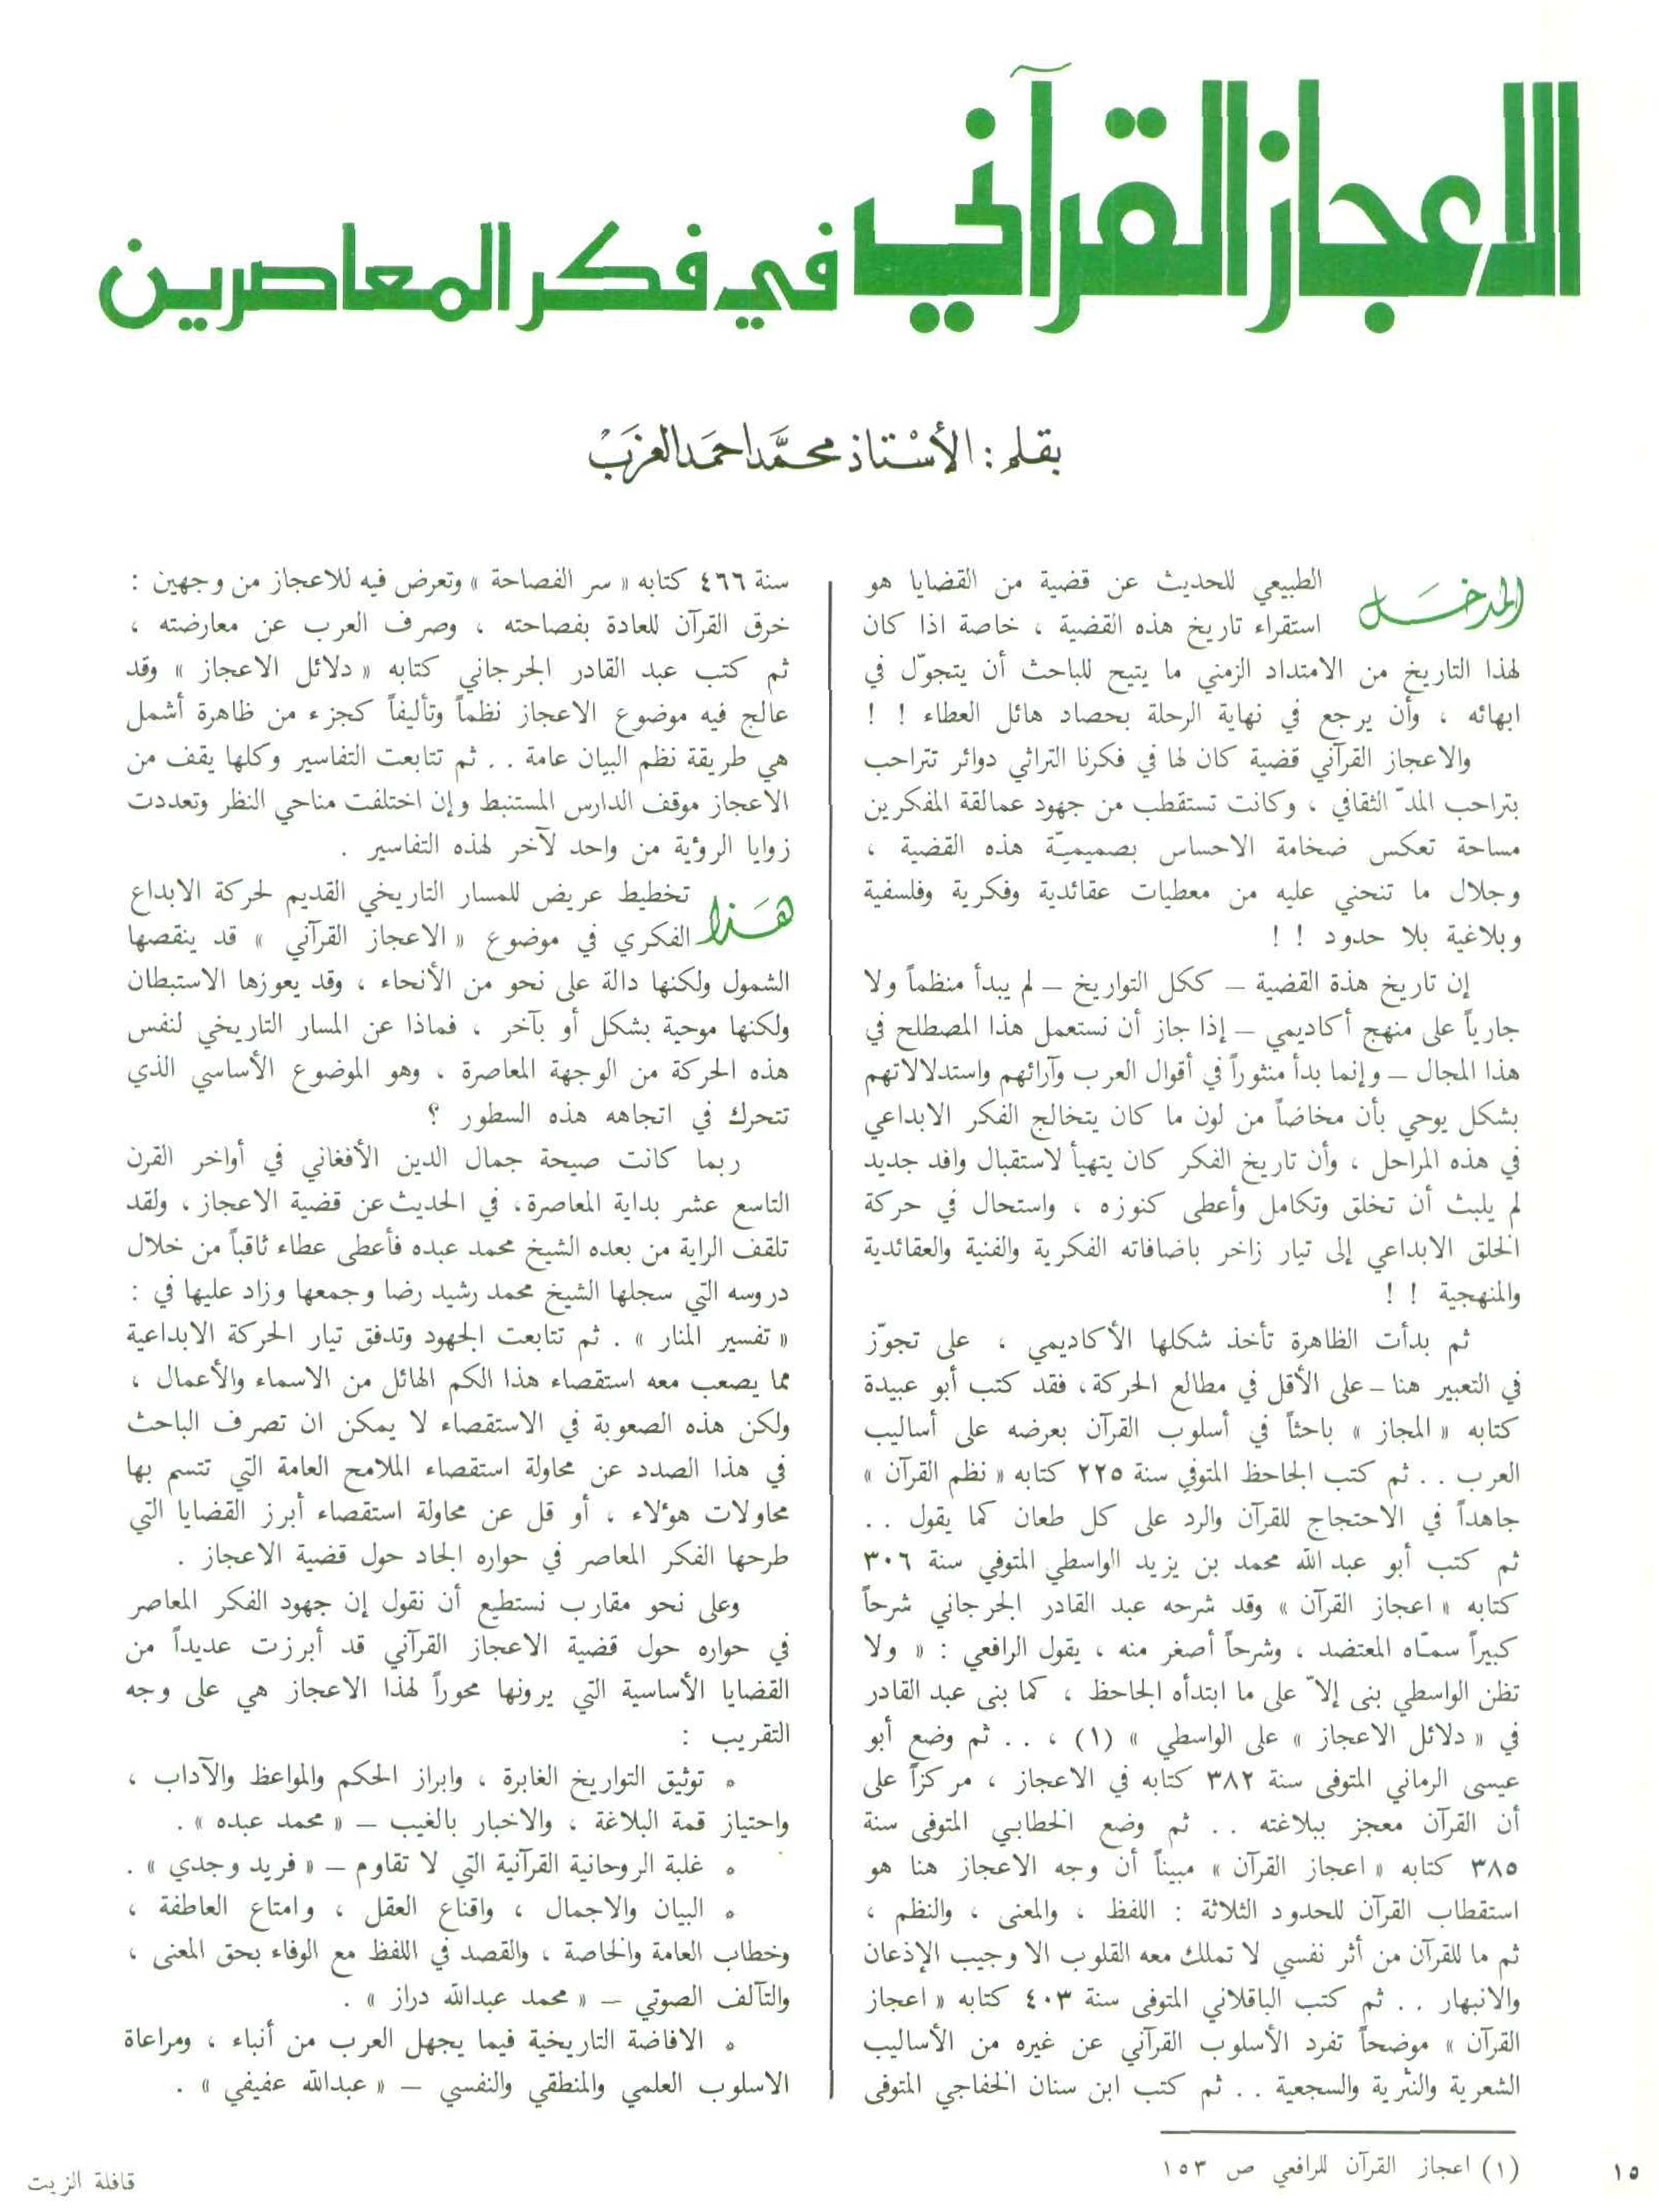 الاعجاز القرآني في فكر المعاصرين
بقلم : الأسْتاذ محمَّد احمَد العزَبْ
المدخَل الطبيعي للحديث عن قضية من القضايا هو
استقراء تاريخ هذه القضية ، خاصة اذا كان
لهذا التاريخ من الامتداد الزمني ما يتيح للباحث أن يتجوّل في
ابهائه ، وأن يرجع في نهاية الرحلة بحصاد هائل العطاء ! !
والاعجاز القرآني قضية كان لها في فكرنا التراثي دوائر تتراحب
بتراحب المدّ الثقافي ، وكانت تستقطب من جهود عمالقة المفكرين
مساحة تعكس ضخامة الاحساس بصميميّة هذه القضية ،
وجلال ما تنحني عليه من معطيات عقائدية وفكرية وفلسفية
وبلاغية بلا حدود ! !
إن تاريخ هذة القضية – ككل التواريخ – لم يبدأ منظماً ولا
جارياً على منهج أكاديمي – إذا جاز أن نستعمل هذا المصطلح في
هذا المجال – وإنما بدأ منثوراً في أقوال العرب وآرائهم واستدلالاتهم
بشكل يوحي بأن مخاضاً من لون ما كان يتخالج الفكر الابداعي
في هذه المراحل ، وأن تاريخ الفكر كان يتهيأ لاستقبال وافد جديد
لم يلبث أن تخلق وتكامل وأعطى كنوزه ، واستحال في حركة
الخلق الابداعي إلى تيار زاخر باضافاته الفكرية والفنية والعقائدية
والمنهجية ! !
ثم بدأت الظاهرة تأخذ شكلها الأكاديمي ، على تجوّز
في التعبير هنا – على الأقل في مطالع الحركة، فقد كتب أبو عبيدة
كتابه « المجاز » باحثاً في أسلوب القرآن بعرضه على أساليب
العرب . . ثم كتب الجاحظ المتوفي سنة ٢٢٥ كتابه « نظم القرآن »
جاهداً في الاحتجاج للقرآن والرد على كل طعان كما يقول . .
ثم كتب أبو عبد الله محمد بن يزيد الواسطي المتوفي سنة ٣٠٦
كتابه « اعجاز القرآن » وقد شرحه عبد القادر الجرجاني شرحاً
كبيراً سمّاه المعتضد ، وشرحاً أصغر منه ، يقول الرافعي : « ولا
تظن الواسطي بنى إلاّ على ما ابتدأه الجاحظ ، كما بنى عبد القادر
في « دلائل الاعجاز » على الواسطي » (١) ، . . ثم وضع أبو
عيسى الرماني المتوفى سنة ٣٨٢ كتابه في الاعجاز ، مركزاً على
أن القرآن معجز ببلاغته . . ثم وضع الخطابي المتوفى سنة
٣٨٥ كتابه « اعجاز القرآن » مبيناً أن وجه الاعجاز هنا هو
استقطاب القرآن للحدود الثلاثة : اللفظ ، والمعنى ، والنظم ،
ثم ما للقرآن من أثر نفسي لا تملك معه القلوب الا وجيب الإذعان
والانبهار . . ثم كتب الباقلاني المتوفى سنة ٤٠٣ كتابه « اعجاز
القرآن » موضحاً تفرد الأسلوب القرآني عن غيره من الأساليب
الشعرية والنثرية والسجعية . . ثم كتب ابن سنان الخفاجي المتوفى
سنة ٤٦٦ كتابه « سر الفصاحة » وتعرض فيه للاعجاز من وجهين :
خرق القرآن للعادة بفصاحته ، وصرف العرب عن معارضته ،
ثم كتب عبد القادر الجرجاني كتابه « دلائل الاعجاز » وقد
عالج فيه موضوع الاعجاز نظماً وتأليفاً كجزء من ظاهرة أشمل
هي طريقة نظم البيان عامة . . ثم تتابعت التفاسير وكلها يقف من
الاعجاز موقف الدارس المستنبط وإن اختلفت مناحي النظر وتعددت
زوايا الرؤية من واحد لآخر لهذه التفاسير .
هَذا تخطيط عريض للمسار التاريخي القديم لحركة الابداع
الفكري في موضوع « الاعجاز القرآني » قد ينقصها
الشمول ولكنها دالة على نحو من الأنحاء ، وقد يعوزها الاستبطان
ولكنها موحية بشكل أو بآخر ، فماذا عن المسار التاريخي لنفس
هذه الحركة من الوجهة المعاصرة ، وهو الموضوع الأساسي الذي
تتحرك في اتجاهه هذه السطور ؟
ربما كانت صيحة جمال الدين الأفغاني في أواخر القرن
التاسع عشر بداية المعاصرة، في الحديث عن قضية الاعجاز ، ولقد
تلقف الراية من بعده الشيخ محمد عبده فأعطى عطاء ثاقباً من خلال
دروسه التي سجلها الشيخ محمد رشيد رضا وجمعها وزاد عليها في :
« تفسير المنار » . ثم تتابعت الجهود وتدفق تيار الحركة الابداعية
مما يصعب معه استقصاء هذا الكم الهائل من الاسماء والأعمال ،
ولكن هذه الصعوبة في الاستقصاء لا يمكن ان تصرف الباحث
في هذا الصدد عن محاولة استقصاء الملامح العامة التي تتسم بها
محاولات هؤلاء ، أو قل عن محاولة استقصاء أبرز القضايا التي
طرحها الفكر المعاصر في حواره الجاد حول قضية الاعجاز .
وعلى نحو مقارب نستطيع أن نقول إن جهود الفكر المعاصر
في حواره حول قضية الاعجاز القرآني قد أبرزت عديداً من
القضايا الأساسية التي يرونها محوراً لهذا الاعجاز هي على وجه
التقريب :
• توثيق التواريخ الغابرة ، وابراز الحكم والمواعظ والآداب ،
واحتياز قمة البلاغة ، والاخبار بالغيب – « محمد عبده » .
• غلبة الروحانية القرآنية التي لا تقاوم – « فريد وجدي » .
• البيان والاجمال ، واقناع العقل ، وامتاع العاطفة ،
وخطاب العامة والخاصة ، والقصد في اللفظ مع الوفاء بحق المعنى ،
والتآلف الصوتي – « محمد عبدالله دراز » .
• الافاضة التاريخية فيما يجهل العرب من أنباء ، ومراعاة
الاسلوب العلمي والمنطقي والنفسي – « عبدالله عفيفي » .
(١) اعجاز القرآن للرافعي ص ١٥٣
١٥
قافلة الزيت